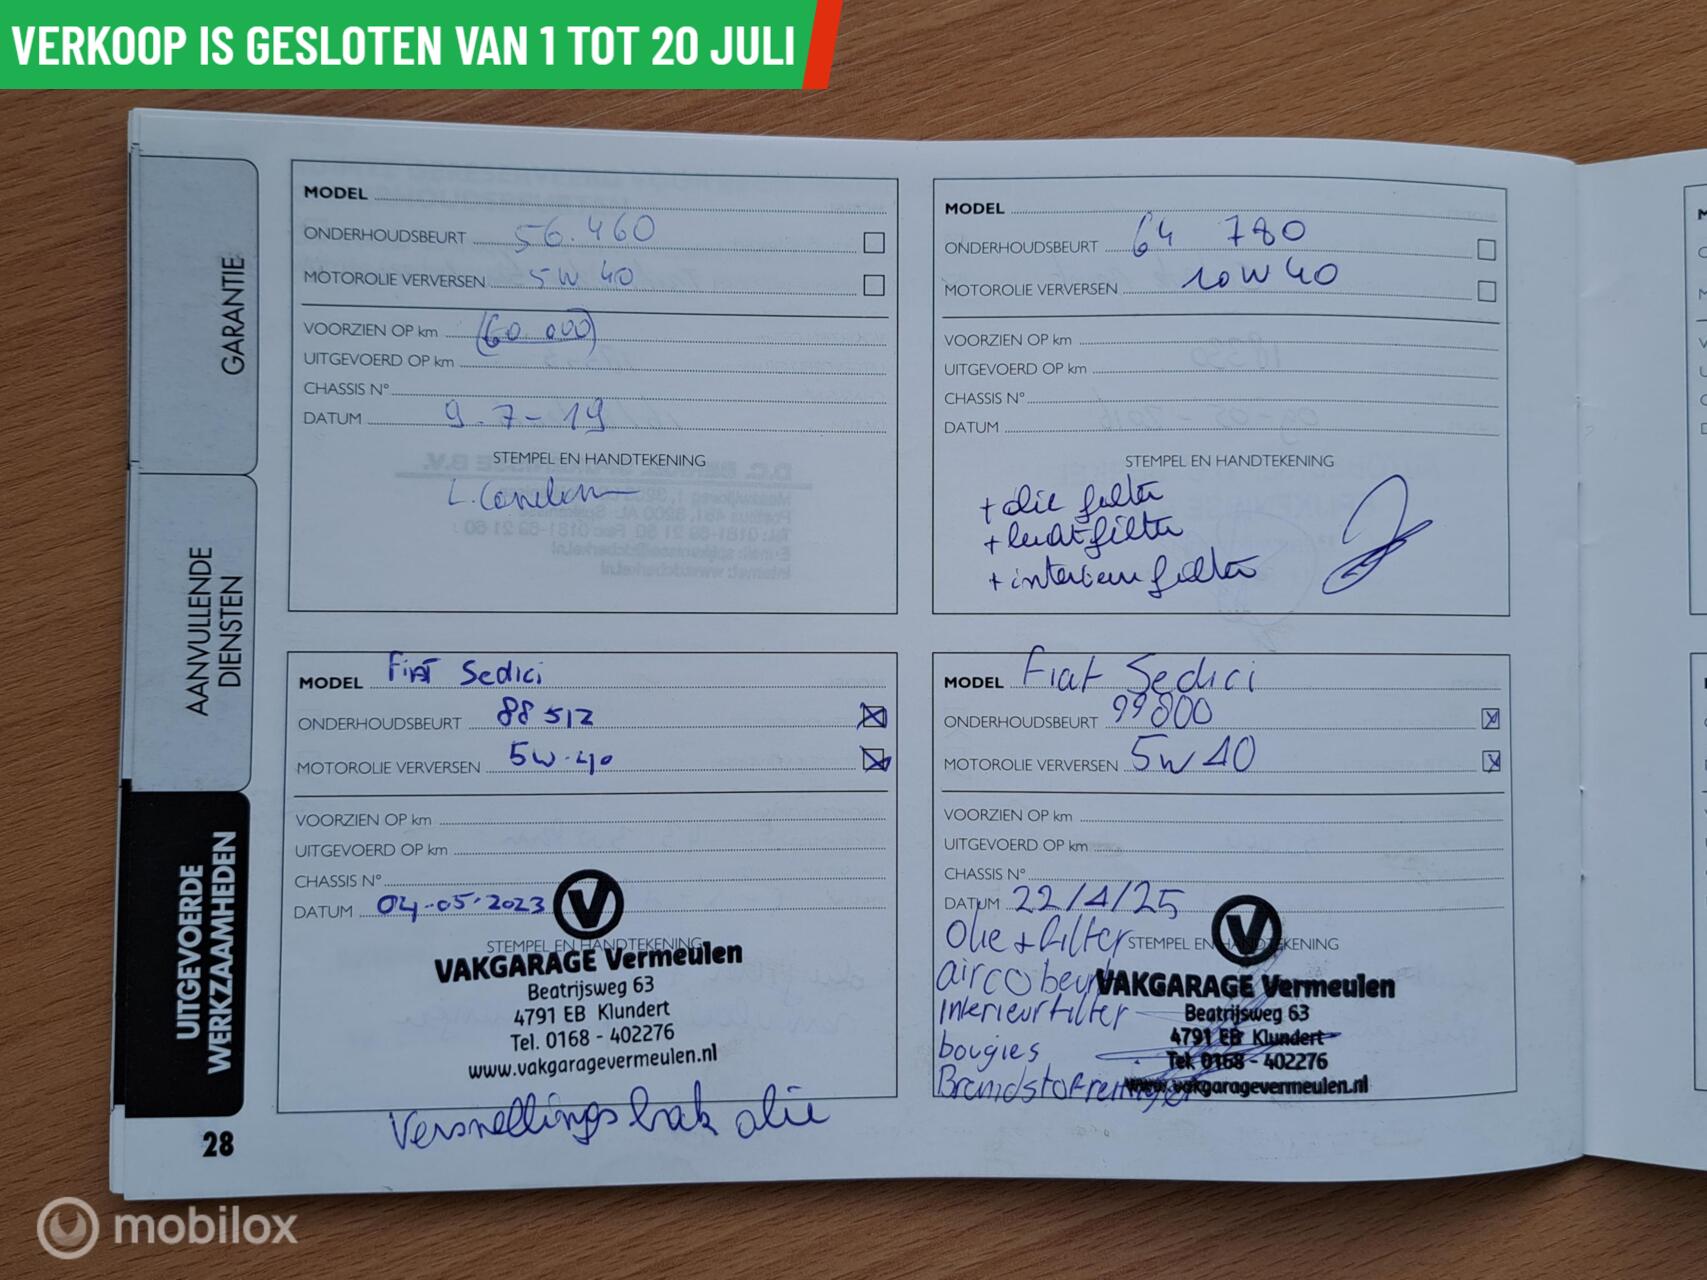 VERKOOP IS GESLOTEN VAN 1 TOT 20 JULI
GARANTIE
AANVULLENDE
DIENSTEN
UITGEVOERDE
WERKZAAMHEDEN
28
MODEL
ONDERHOUDSBEURT 56.460
MOTOROLIE VERVERSEN 5W40
VOORZIEN OP km (60.000)
UITGEVOERD OP km
CHASSIS N°
DATUM 9-7-19
STEMPEL EN HANDTEKENING
MODEL
ONDERHOUDSBEURT 64 780
MOTOROLIE VERVERSEN 10W40
VOORZIEN OP km
UITGEVOERD OP km
CHASSIS N°
DATUM
STEMPEL EN HANDTEKENING
+ olie filter
+ luchtfilter
+ interieur filter
MODEL Fiat Sedici
ONDERHOUDSBEURT 88 512
MOTOROLIE VERVERSEN 5W-40
VOORZIEN OP km
UITGEVOERD OP km
CHASSIS N°
DATUM 04-05-2023
STEMPEL EN HANDTEKENING
VAKGARAGE Vermeulen
Beatrijsweg 63
4791 EB Klundert
Tel. 0168 - 402276
www.vakgaragevermeulen.nl
Versnellingsbak olie
MODEL Fiat Sedici
ONDERHOUDSBEURT 99800
MOTOROLIE VERVERSEN 5W40
VOORZIEN OP km
UITGEVOERD OP km
CHASSIS N°
DATUM 22/4/25
STEMPEL EN HANDTEKENING
Olie + filter
airco beurt
Interieurfilter
bougies
Brandstofreiniger
VAKGARAGE Vermeulen
Beatrijsweg 63
4791 EB Klundert
Tel. 0168 - 402276
www.vakgaragevermeulen.nl
mobilox